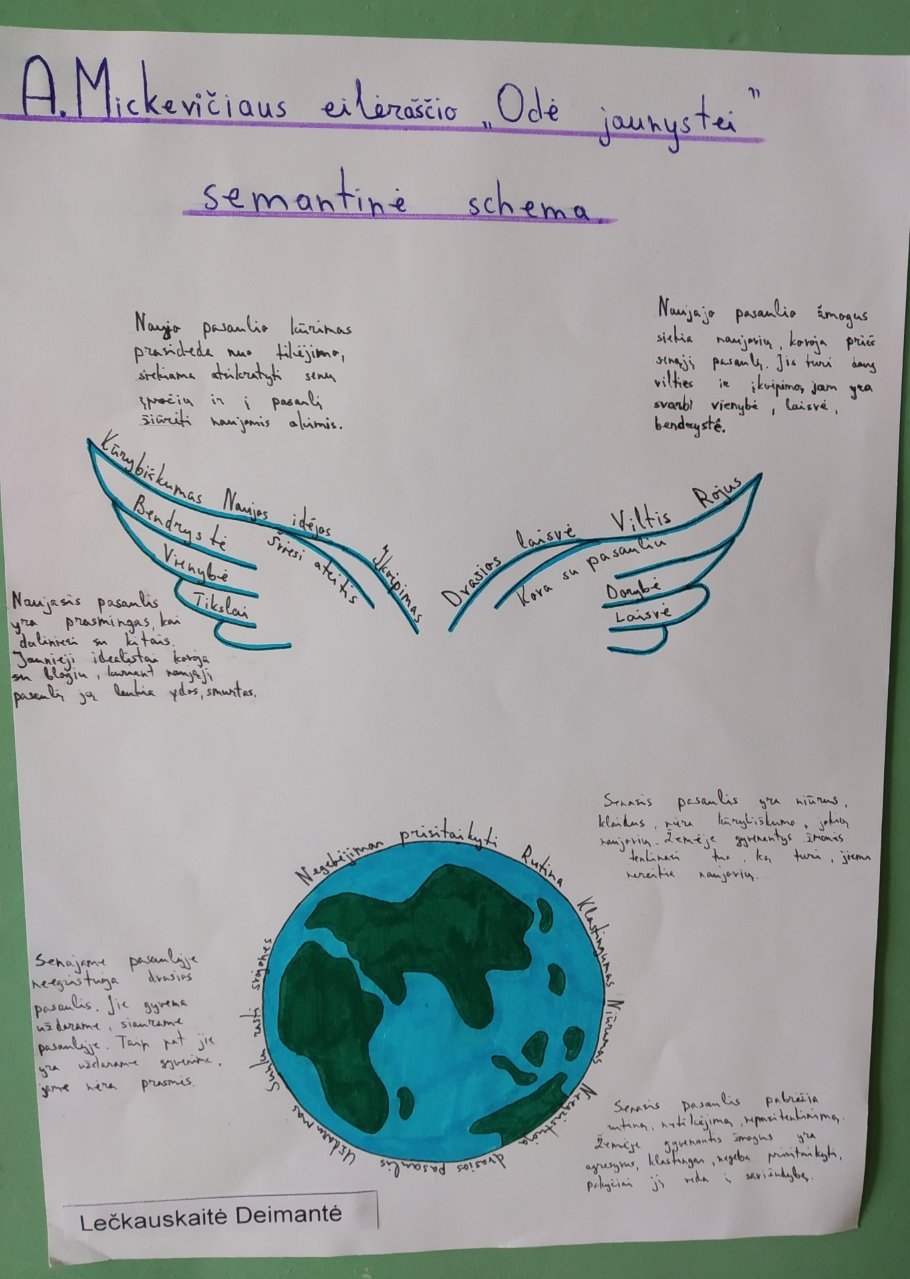 A. Mickevičiaus eilėraščio „Odė jaunystei"
semantinė schema
Naujo pasaulio kūrimas
prasideda nuo tikėjimo,
siekiama atsikratyti senų
įpročių ir į pasaulį
žiūrėti naujomis akimis.
Naujajo pasaulio žmogus
siekia naujovių, kovoja prieš
senąjį pasaulį. Jis turi daug
vilties ir įkvėpimo, jam yra
svarbi vienybė, laisvė,
bendrystė.
Kūrybiškumas Naujos idėjos Įkvėpimas
Bendrystė
Šviesi ateitis
Vienybė
Tikslai
Drąsios laisvė Viltis Rojus
Kova su pasauliu
Dorybė
Laisvė
Naujasis pasaulis
yra prasmingas, kai
daliniesi su kitais.
Jaunieji idealistai kovoja
su blogiu, kuriant naująjį
pasaulį jų laukia ydos, smurtas.
Senasis pasaulis yra niūrus,
klaidus, nėra kūrybiškumo, jokių
naujovių. Žemėje gyvenantys žmonės
tenkinasi tuo, ką turi, jiems
nereikia naujovių.
Negebėjimas prisitaikyti Rutina Klastingumas Niūrumas Neegzistuoja
drąsios pasaulis Uždarumas Sunku rasti svajones
Senajame pasaulyje
neegzistuoja drąsios
pasaulis. Jie gyvena
uždarame, siaurame
pasaulyje. Taip pat jie
yra uždarame gyvenime,
jame nėra prasmės.
Senasis pasaulis pabrėžia
rutiną, netikėjimą, nepasitenkinimą.
Žemėje gyvenantis žmogus yra
agresyvus, klastingas, negeba prisitaikyti,
pokyčiai jį veda į savižudybę.
Lečkauskaitė Deimantė